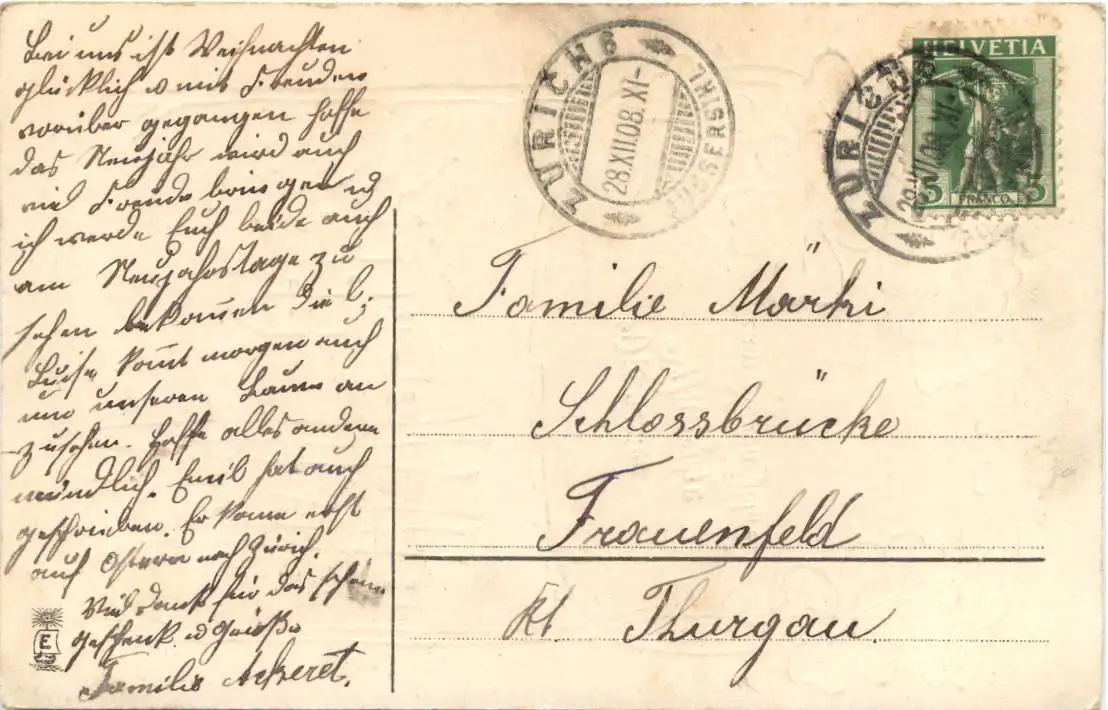 Bei uns ist Weihnachten
glücklich u mit Freuden
vorüber gegangen hoffe
das Neujahr wird auch
viel Freude bringen u
ich werde Euch beide auch
am Neujahrstage zu
sehen bekomen die l;
Luise komt morgen auch
um unseren Baum an
zusehen. Hoffe alles andere
mündlich. Emil hat auch
geschrieben. Er kome erst
auf Ostern nach Zürich.
Viel dank für das schöne
geschenk u Grüße
Familie Ackeret.
ZÜRICH 6
28.XII.08. XI-
ZÜRICH
28.XII.08. XI-
HELVETIA
5 FRANCO 5
Familie Märki
Schlossbrücke
Frauenfeld
Kt. Thurgau.
E